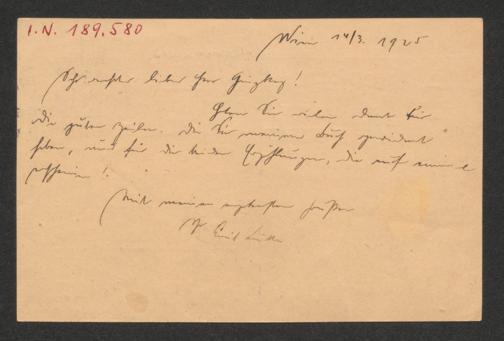 I.N. 189.580
Wien 14/3. 1925
Sehr geehrter lieber Herr Ginzkey!
Haben Sie vielen Dank für
die guten Zeilen, die Sie meinem Buch gewidmet
haben, und für die beiden Erzählungen, die
Mit meinen ergebensten Grüßen
Ihr Emil